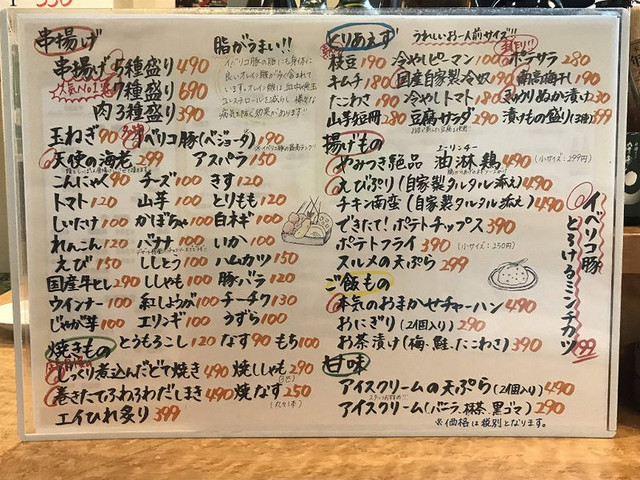 串揚げ
串揚げ 5種盛り 490
人気No.1 7種盛り 690
肉3種盛り 390
脂がうまい!!
玉ねぎ 90
イベリコ豚(ベジョータ) 190
天使の海老 299 アスパラ 150
こんにゃく 90 チーズ 100 きす 120
トマト 120 山芋 100 とりもも 120
しいたけ 100 かぼちゃ 100 白ネギ 100
れんこん 120 バナナ 100 いか 100
えび 150 ししとう 100 ハムカツ 150
国産牛ヒレ 290 ししゃも 100 豚バラ 120
ウインナー 100 紅しょうが 100 チーチク 130
じゃが芋 100 エリンギ 100 うずら 100
とうもろこし 120 なす 90 もち 100
焼きもの
じっくり煮込んだどて焼き 490 焼ししゃも 290
巻きたてふわふわだしまき 490 焼なす 250
エイひれ炙り 399
とりあえず
うれしいお一人前サイズ!!
枝豆 190 冷やしピーマン 100 ポテサラ 280
キムチ 180 国産自家製冷奴 190 南高梅干し 190
たこわさ 190 冷やしトマト 180 きゅうりぬか漬け 230
山芋短冊 280 豆腐サラダ 290 漬けもの盛り(3種) 399
揚げもの
やみつき絶品 油淋鶏 490 (小サイズ:299円)
ユーリンチー
えびぷり(自家製タルタル添え) 490
チキン南蛮(自家製タルタル添え) 490
できたて!ポテトチップス 390
ポテトフライ 390 (小サイズ:250円)
スルメの天ぷら 299
イベリコ豚
とろけるミンチカツ 199
ご飯もの
本気のおまかせチャーハン 490
おにぎり(2個入り) 290
お茶漬け(梅、鮭、たこわさ) 390
甘味
アイスクリームの天ぷら(2個入り) 490
アイスクリーム(バニラ、抹茶、黒ゴマ) 290
※価格は税別となります。